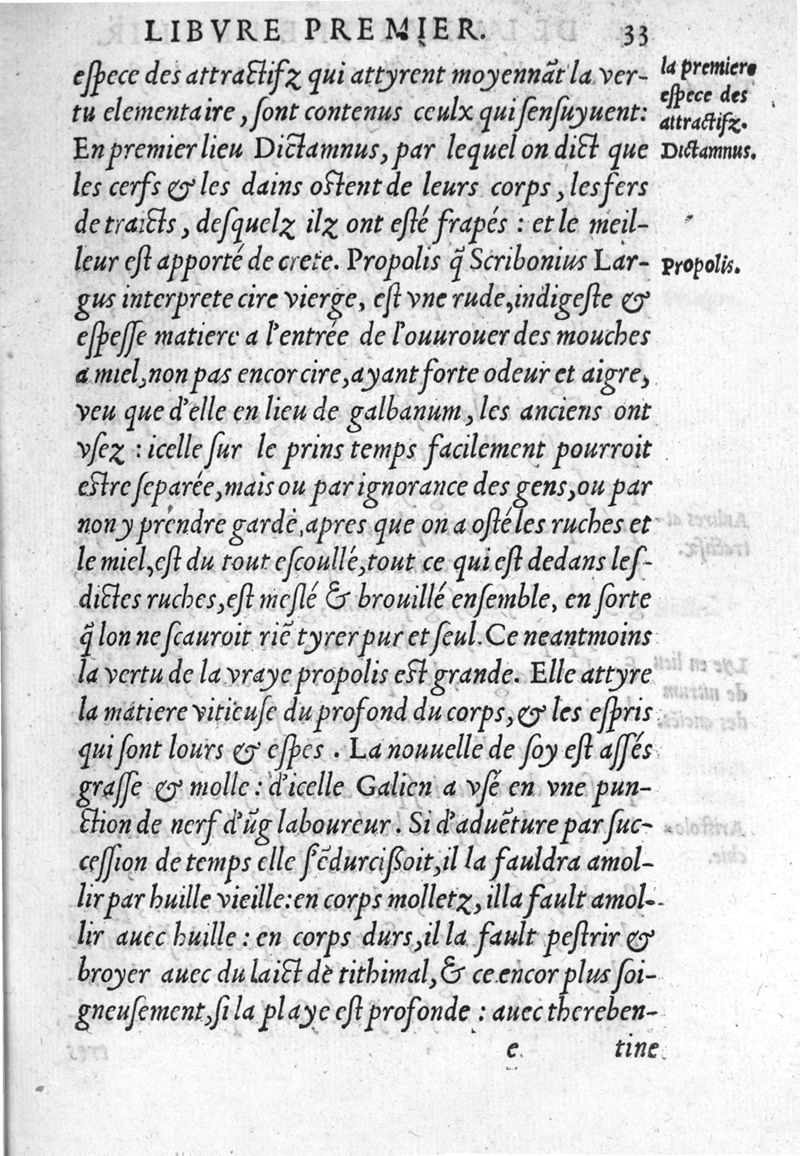 LIBVRE PREMIER. 33
eſpece des attractifz qui attyrent moyennāt la ver-
tu elementaire, ſont contenus ceulx qui ſenſuyuent:
En premier lieu Dictamnus, par lequel on dict que
les cerfs & les dains oſtent de leurs corps, les fers
de traicts, deſquelz ilz ont eſté frapés : et le meil-
leur eſt apporté de crete. Propolis q̃ Scribonius Lar-
gus interprete cire vierge, eſt vne rude, indigeſte &
eſpeſſe matiere a l'entrée de l'ouurouer des mouches
a miel, non pas encor cire, ayant forte odeur et aigre,
veu que d'elle en lieu de galbanum, les anciens ont
vſez : icelle ſur le prins temps facilement pourroit
eſtre ſeparée, mais ou par ignorance des gens, ou par
non y prendre garde, apres que on a oſté les ruches et
le miel, eſt du tout eſcoullé, tout ce qui eſt dedans leſ-
dictes ruches, eſt meſlé & brouillé enſemble, en ſorte
q̃ lon ne ſcauroit riē tyrer pur et ſeul. Ce neantmoins
la vertu de la vraye propolis eſt grande. Elle attyre
la matiere viticuſe du profond du corps, & les eſpris
qui ſont lours & eſpes . La nouuelle de ſoy eſt aſſés
graſſe & molle : d'icelle Galien a vſé en vne pun-
ction de nerf d'ũg laboureur. Si d'aduēture par ſuc-
ceſſion de temps elle ſ'ēdurciſſoit, il la fauldra amol-
lir par huille vieille: en corps molletz, il la fault amol-
lir auec huille : en corps durs, il la fault peſtrir &
broyer auec du laict de tithimal, & ce encor plus ſoi-
gneuſement, ſi la playe eſt profonde : auec thereben-
e tine
la premiere
eſpece des
attractifz.
Dictamnus.
Propolis.